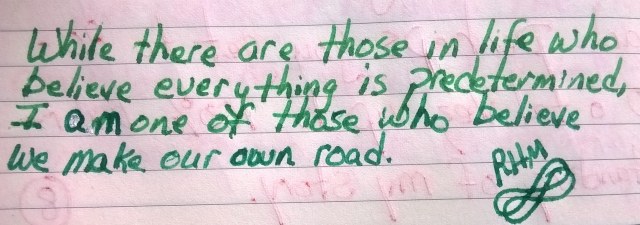 While there are those in life who
believe everything is predetermined,
I am one of those who believe
we make our own road.
RHM